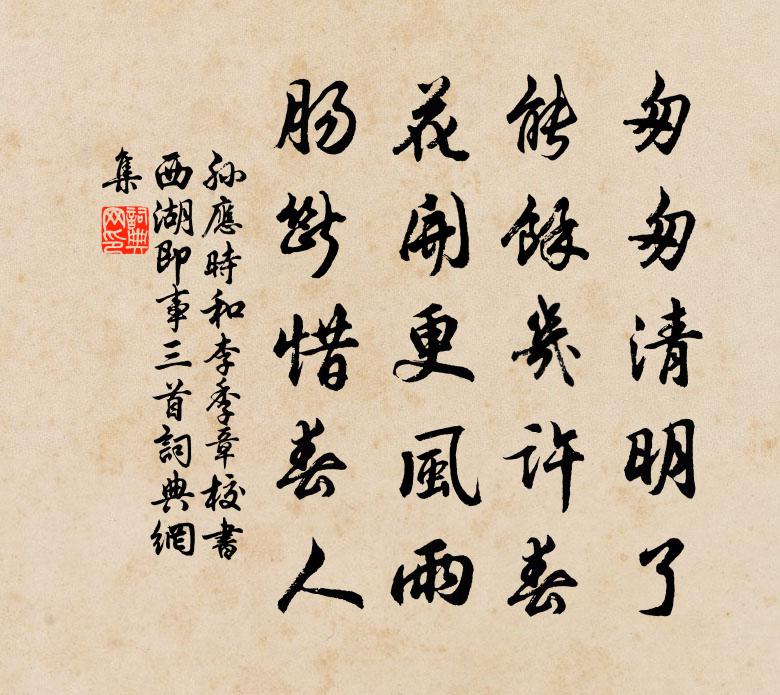 匆匆清明了
能餘幾許春
花開更風雨
腸斷惜春人
孫應時和李季章校書
西湖即事三首詞典網
集
詞典
网印